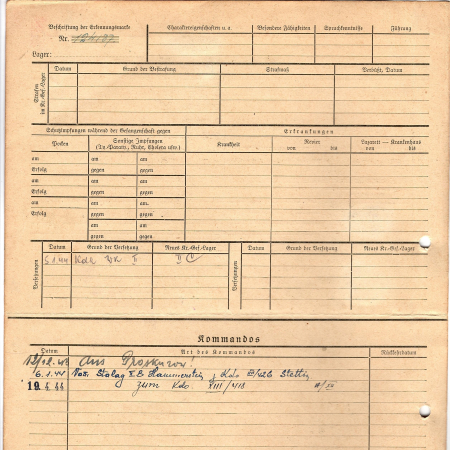 Beschriftung der Erkennungsmarke
Nr.
Lager:
Charaktereigenschaften u. a.
Besondere Fähigkeiten
Sprachkenntnisse
Führung
Strafen im Kr.-Gef.-Lager
Datum
Grund der Bestrafung
Strafmaß
Verbüßt, Datum
Schutzimpfungen während der Gefangenschaft gegen
Erkrankungen
Pocken
Sonstige Impfungen
(Ty. Paraty., Ruhr, Cholera usw.)
Krankheit
Revier
von bis
Lazarett — Krankenhaus
von bis
am am am
Erfolg gegen gegen
am am am
Erfolg gegen gegen
am am am
Erfolg gegen gegen
am am
gegen gegen
Versetzungen
Datum
Grund der Versetzung
Neues Kr.-Gef.-Lager
Versetzungen
Datum
Grund der Versetzung
Neues Kr.-Gef.-Lager
5.1.44 Kdr. WK II II
Kommandos
Datum
Art des Kommandos
Rückkehrdatum
aus Proskurow!
6.1.44 Stalag II B Hammerstein, Kdo Stettin
19.4.44 zum Kdo. VIII/418